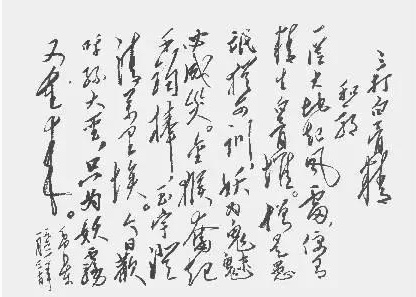 三打白骨精
一从大地起风雷，便有
精生白骨堆。僧是愚
氓犹可训，妖为鬼
必成灾。金猴奋起
千钧棒，玉宇澄
清万里埃。今日欢
呼孙大圣，只为妖雾
又重来。